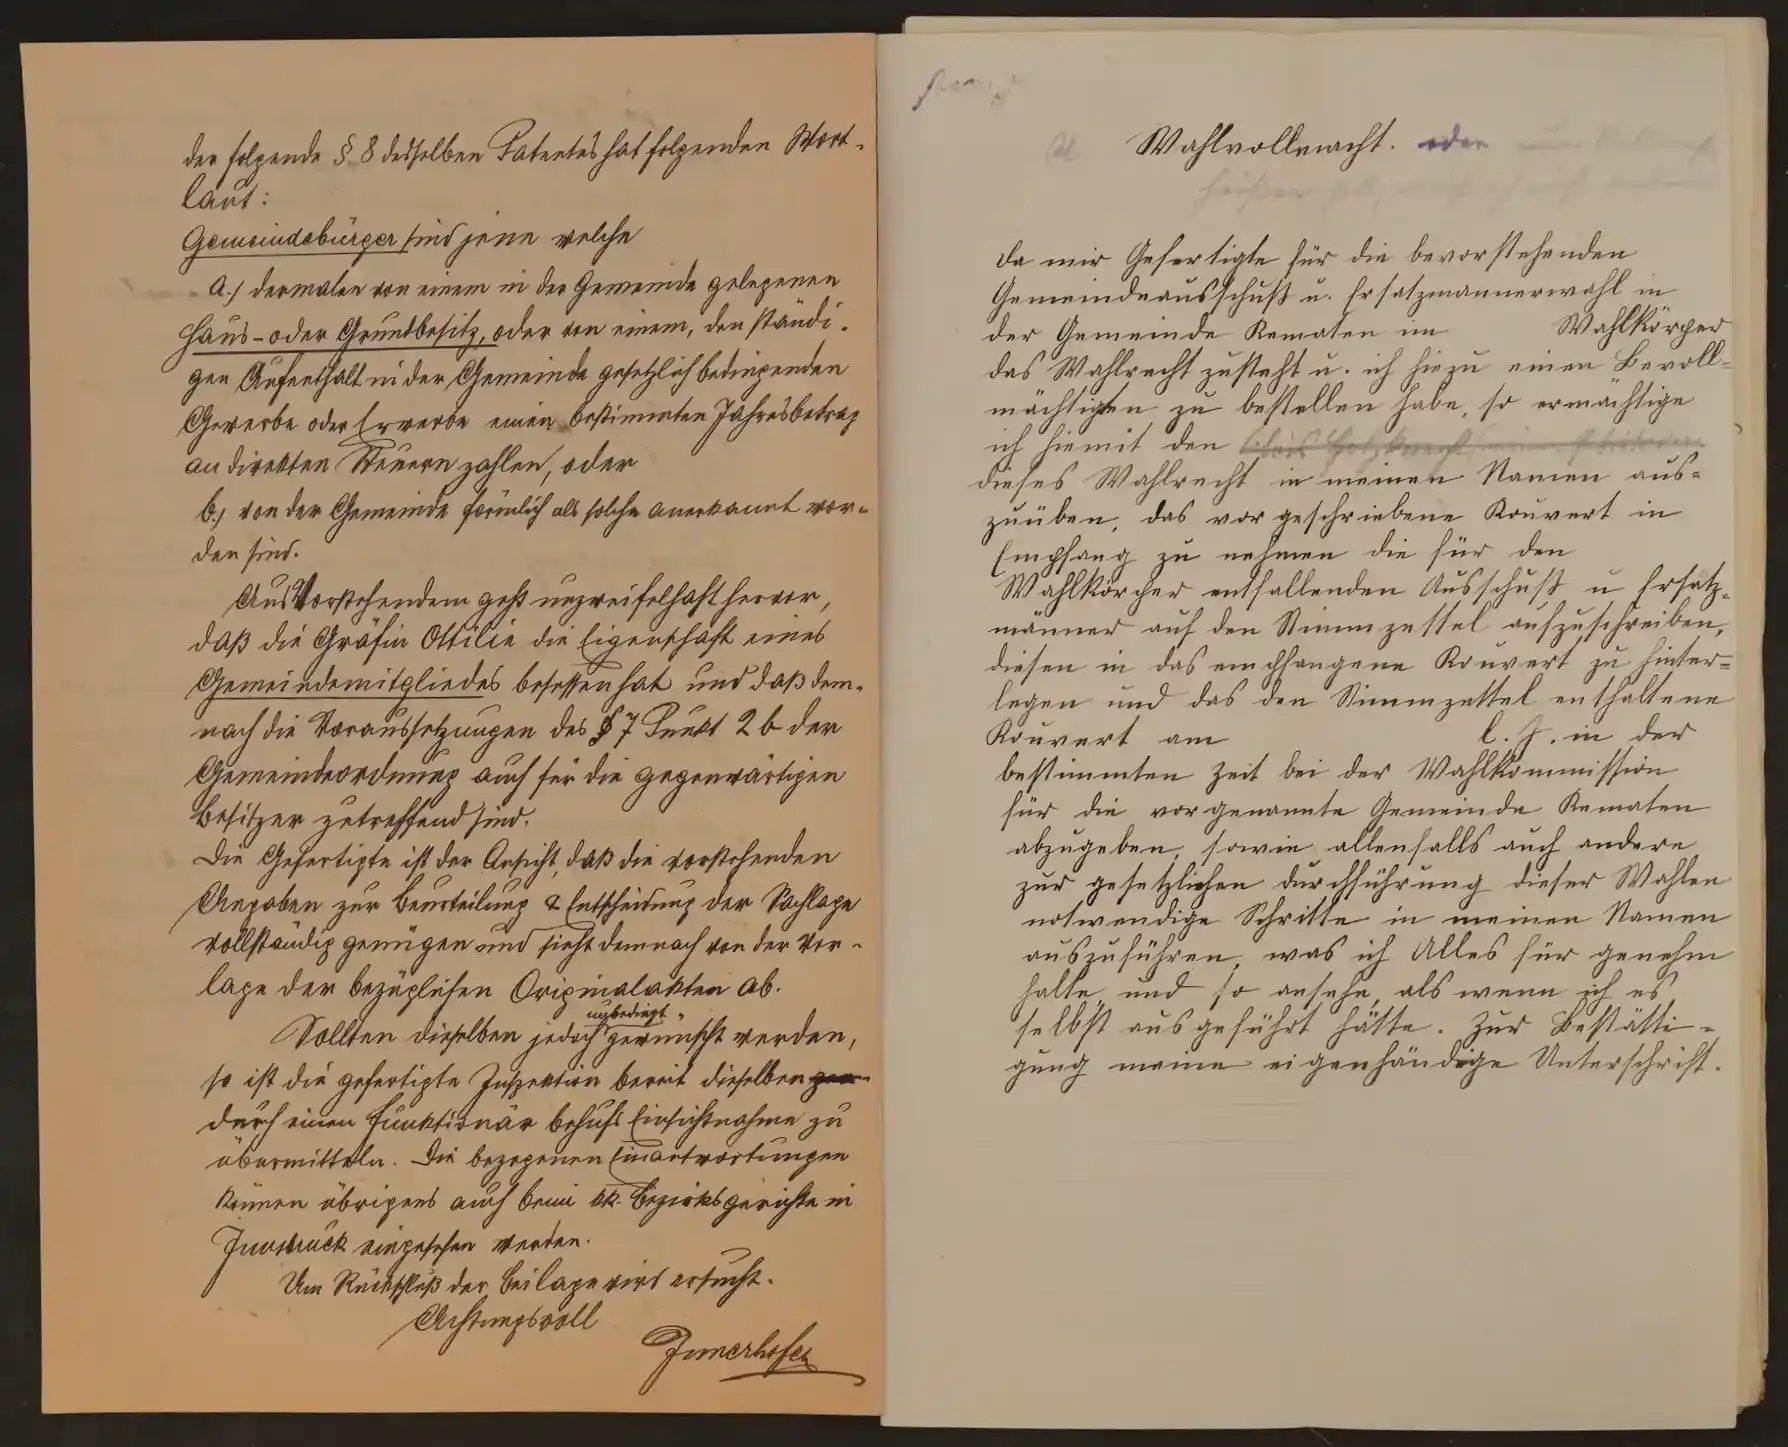 der folgende § 8 desselben Patentes hat folgenden Wort-
laut:
Gemeindebürger sind jene welche
a.) dermalen von einem in der Gemeinde gelegenen
Haus- oder Grundbesitz, oder von einem, den ständi-
gen Aufenthalt in der Gemeinde gesetzlich bedingenden
Gewerbe oder Erwerbe einen bestimmten Jahresbetrag
an direkten Steuern zahlen, oder
b.) von der Gemeinde förmlich als solche anerkannt wor-
den sind.
Aus Vorstehendem geht unzweifelhaft hervor,
daß die Gräfin Ottilie die Eigenschaft eines
Gemeindemitgliedes besessen hat und daß dem-
nach die Voraussetzungen des § 7 Punkt 2 b der
Gemeindeordnung auch für die gegenwärtigen
Besitzer zutreffend sind.
Die Gefertigte ist der Ansicht, daß die vorstehenden
Angaben zur Beurteilung & Entscheidung der Sachlage
vollständig genügen und sieht demnach von der Vor-
lage der bezüglichen Originalakten ab.
unbedingt
Sollten dieselben jedoch gewünscht werden,
so ist die gefertigte Inspektion bereit dieselben
durch einen Funktionär behufs Einsichtnahme zu
übermitteln. Die bezogenen Einantwortungen
können übrigens auch beim kk. Bezirksgerichte in
Innsbruck eingesehen werden.
Um Rückschluß der Beilage wird ersucht.
Achtungsvoll
Innerhofer
Wahlvollmacht. oder
Da mir Gefertigte für die bevorstehenden
Gemeindeausschuß u. Ersatzmannerwahl in
der Gemeinde Kematen im Wahlkörper
das Wahlrecht zusteht u. ich hiezu einen Bevoll=
mächtigten zu bestellen habe, so ermächtige
ich hiemit den
dieses Wahlrecht in meinen Namen aus=
zuüben, das vorgeschriebene Kouvert in
Empfang zu nehmen die für den
Wahlkörper entfallenden Ausschuß u Ersatz=
männer auf den Stimmzettel aufzuschreiben,
diesen in das empfangene Kouvert zu hinter=
legen und das den Stimmzettel enthaltene
Kouvert am l. J. in der
bestimmten Zeit bei der Wahlkommission
für die vorgenannte Gemeinde Kematen
abzugeben, sowie allenfalls auch andere
zur gesetzlichen Durchführung dieser Wahlen
notwendige Schritte in meinen Namen
auszuführen, was ich Alles für genehm
halte und so ansehe, als wenn ich es
selbst ausgeführt hätte. Zur Bestätti-
gung meine eigenhändige Unterschrift.